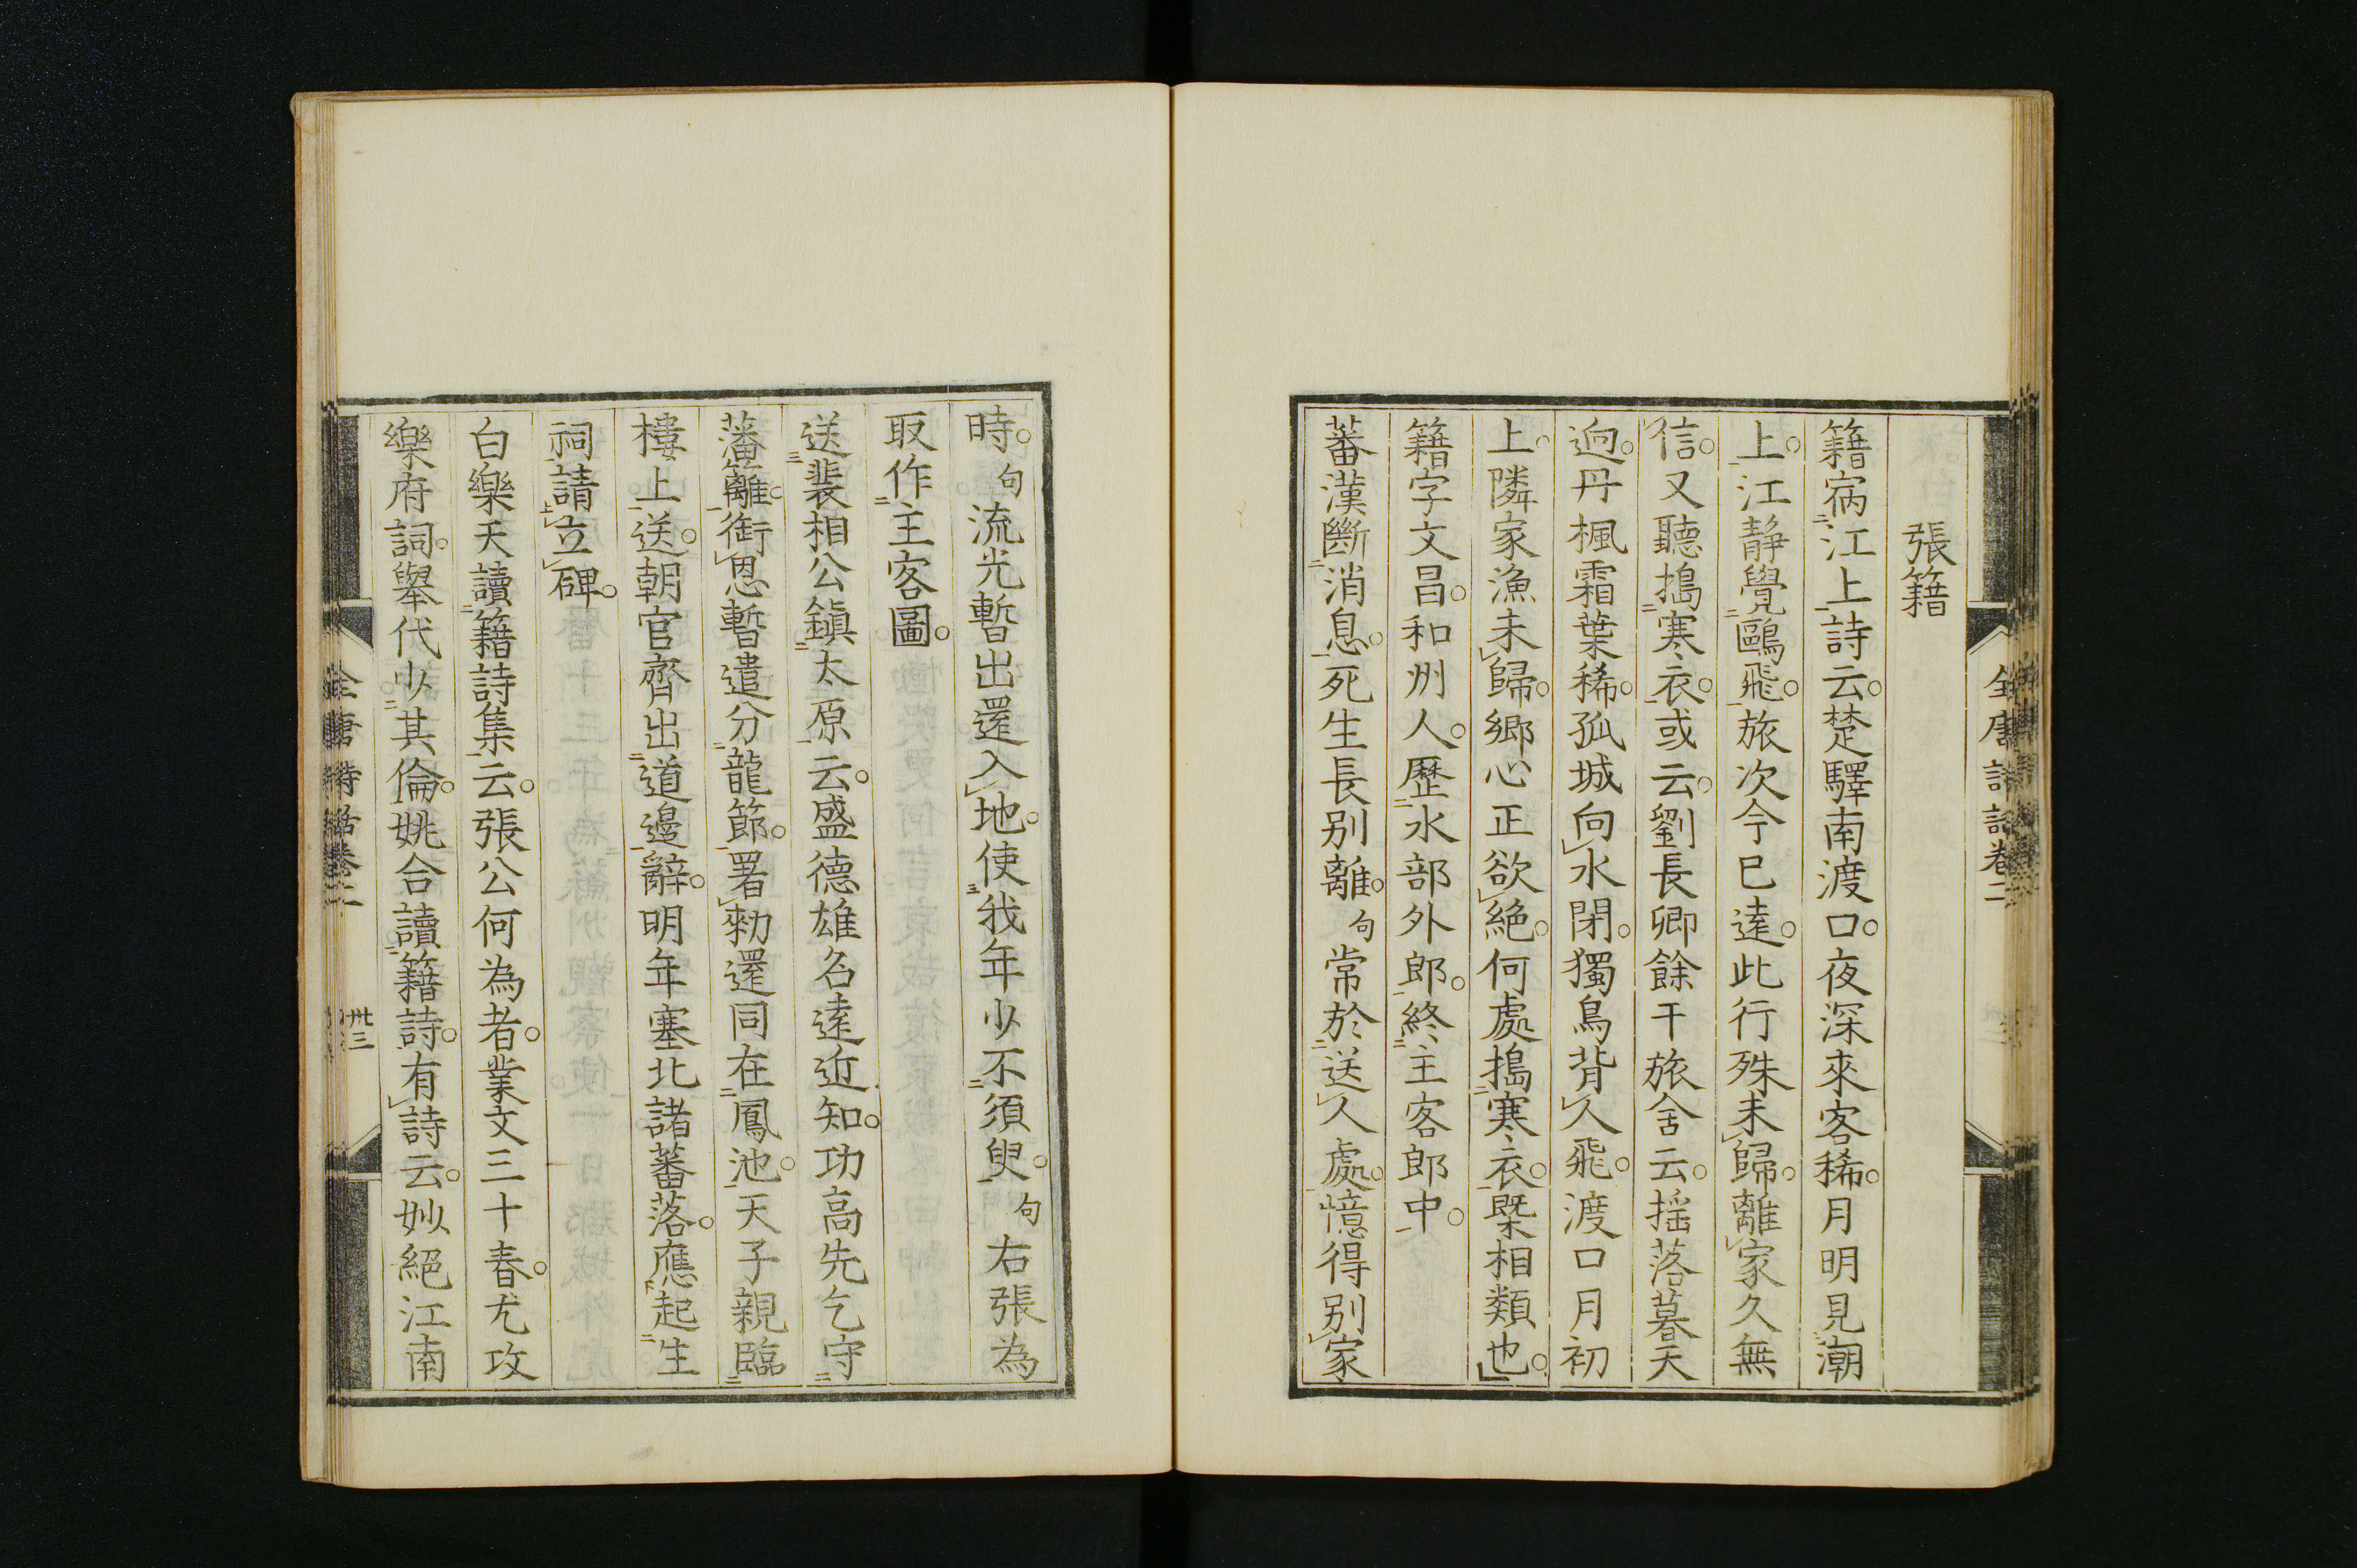 張籍
籍病江上詩云。楚驛南渡口。夜深來客稀。月明見潮
上。江靜覺鷗飛。旅次今已遠。此行殊未歸。離家久無
信。又聽搗寒衣。或云。劉長卿餘干旅舍云。揺落暮天
逈。丹楓霜葉稀。孤城向水閉。獨鳥背人飛。渡口月初
上。隣家漁未歸。鄉心正欲絕。何處搗寒衣。槩相類也。
籍字文昌。和州人。歷水部外郎。終主客郎中。
蕃漢斷消息。死生長別離。句常於送人處。憶得別家
時。句流光暫出還入地。使我年少不須臾。句右張為
取作主客圖。
送裴相公鎮太原云。盛德雄名遠近知。功高先乞守
藩籬。銜恩暫遣分龍節。署勑還同在鳳池。天子親臨
樓上送。朝官齊出道邊辭。明年塞北諸蕃落。應起生
祠請立碑。
白樂天讀籍詩集云。張公何為者。業文三十春。尤攻
樂府詞。舉代少其倫。姚合讀籍詩。有詩云。妙絕江南
全唐詩話卷二
卅三